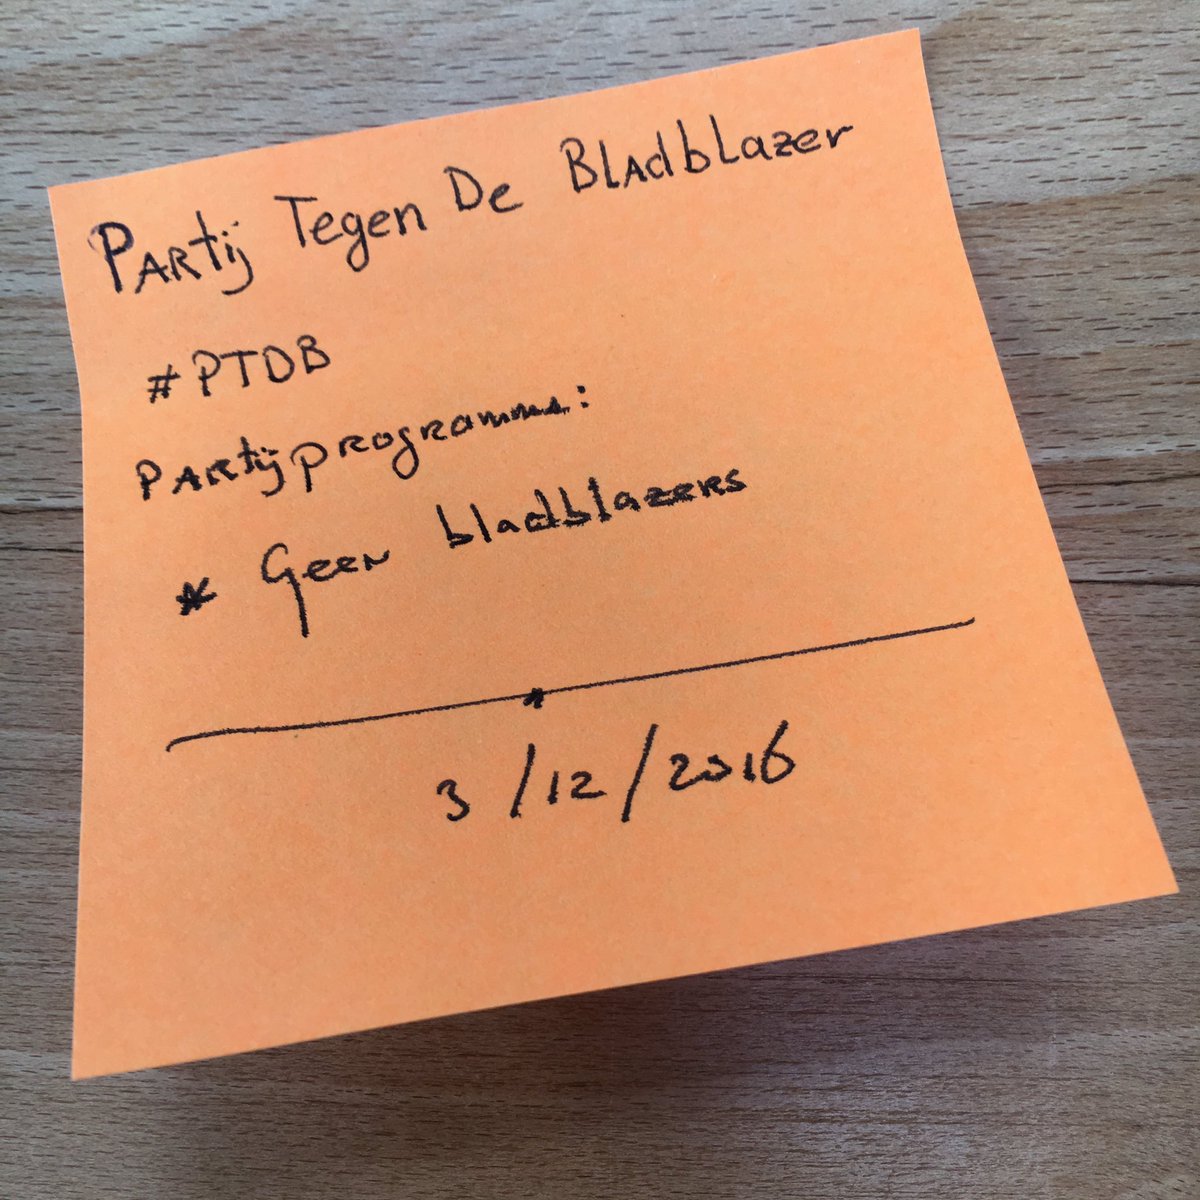 Partij Tegen De Bladblazer
#PTDB
Partijprogramma:
* Geen bladblazers
3/12/2016